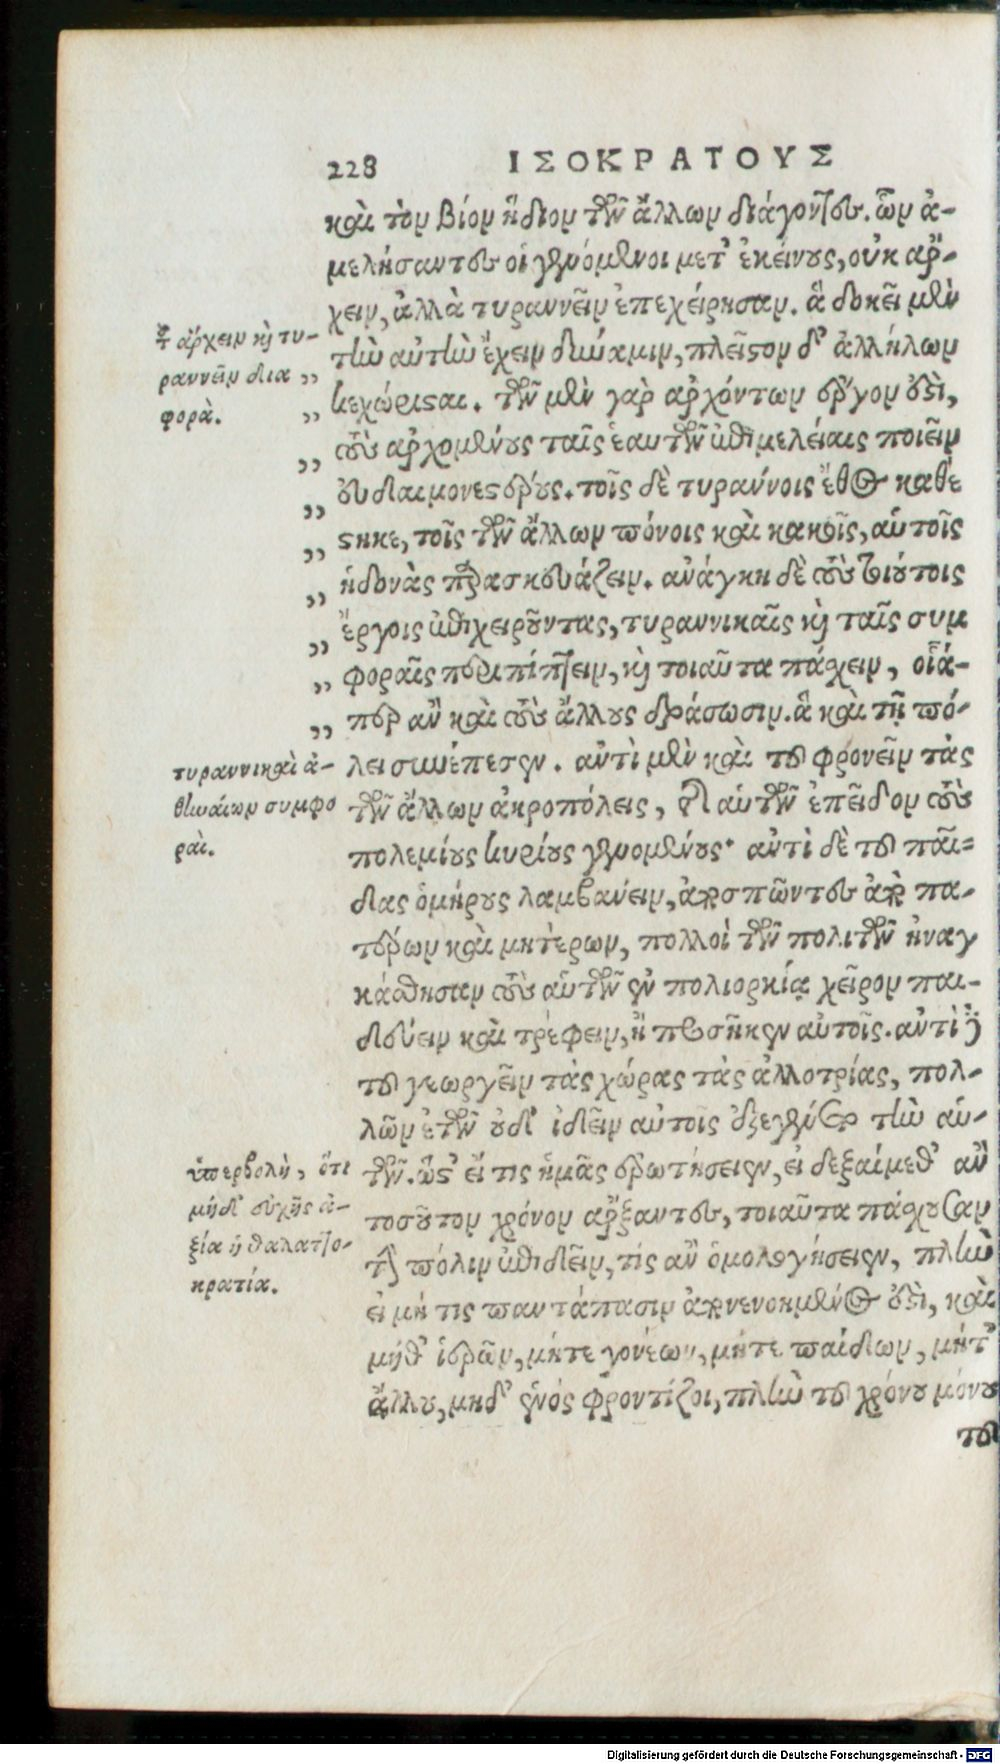 228 ΙΣΟΚΡΑΤΟΥΣ
καὶ τὸν βίον ἥδιον τῶν ἄλλων διάγοντες. ὧν ἀ-
μελήσαντες οἱ γενόμενοι μετ' ἐκείνους, οὐκ ἄρ-
χειν, ἀλλὰ τυραννεῖν ἐπεχείρησαν. ἃ δοκεῖ μὲν
τὴν αὐτὴν ἔχειν δύναμιν, πλεῖστον δ' ἀλλήλων
κεχώρισται. τῶν μὲν γὰρ ἀρχόντων ἔργον ἐστὶ,
τοὺς ἀρχομένους ταῖς ἑαυτῶν ἐπιμελείαις ποιεῖν
εὐδαιμονεστέρους. τοῖς δὲ τυράννοις ἔθος καθέ
στηκε, τοῖς τῶν ἄλλων πόνοις καὶ κακοῖς, αὑτοῖς
ἡδονὰς παρασκευάζειν. ἀνάγκη δὲ τοὺς τοιούτοις
ἔργοις ἐπιχειροῦντας, τυραννικαῖς καὶ ταῖς συμ
φοραῖς περιπίπτειν, καὶ τοιαῦτα πάσχειν, οἷά-
περ ἂν καὶ τοὺς ἄλλους δράσωσιν. ἃ καὶ τῇ πό-
λει συνέπεσεν. ἀντὶ μὲν καὶ τοῦ φρονεῖν τὰς
τῶν ἄλλων ἀκροπόλεις, τῆς αὑτῶν ἐπεῖδον τοὺς
πολεμίους κυρίους γενομένους· ἀντὶ δὲ τοῦ παῖ-
δας ὁμήρους λαμβάνειν, ἀποσπῶντες ἀπὸ πα-
τέρων καὶ μητέρων, πολλοὶ τῶν πολιτῶν ἠναγ
κάσθησαν τοὺς αὑτῶν ἐν πολιορκίᾳ χεῖρον παι-
δεύειν καὶ τρέφειν, ἢ προσῆκεν αὐτοῖς. ἀντὶ δὲ
τοῦ γεωργεῖν τὰς χώρας τὰς ἀλλοτρίας, πολ-
λῶν ἐτῶν οὐδ' ἰδεῖν αὐτοῖς ἐξεγένετο τὴν αὑ-
τῶν. ὥστ' εἴ τις ἡμᾶς ἐρωτήσειεν, εἰ δεξαίμεθ' ἂν
τοσοῦτον χρόνον ἄρξαντες, τοιαῦτα πάσχουσαν
τὴν πόλιν ἐπιδεῖν, τίς ἂν ὁμολογήσειεν, πλὴν
εἰ μή τις παντάπασιν ἀπονενοημένος ἐστὶ, καὶ
μήθ' ἱερῶν, μήτε γονέων, μήτε παίδων, μήτ'
ἄλλου, μηδ' ἑνός φροντίζοι, πλὴν τοῦ χρόνου μόνου
τοῦ
τοῦ ἄρχειν καὶ τυ-
ραννεῖν δια
φορὰ.
τυραννικαὶ ἀ-
θηναίων συμφο
ραὶ.
ὑπερβολὴ, ὅτι
μηδ' εὐχῆς ἀ-
ξία ἡ θαλαττο-
κρατία.
Digitalisierung gefördert durch die Deutsche Forschungsgemeinschaft - DFG